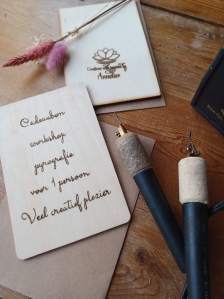 Creatieve
Annelien
Cadeaubon
workshop
pyrografie
voor 1 persoon
Veel creatief plezier